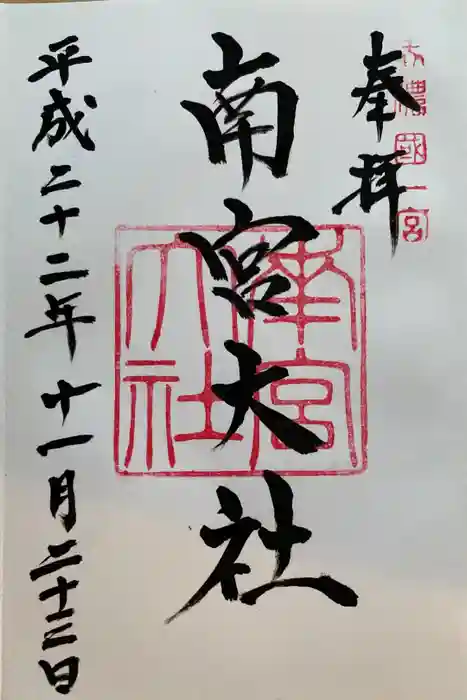 奉拝
美濃國一宮
南宮大社
南宮大社
平成二十二年十一月二十三日